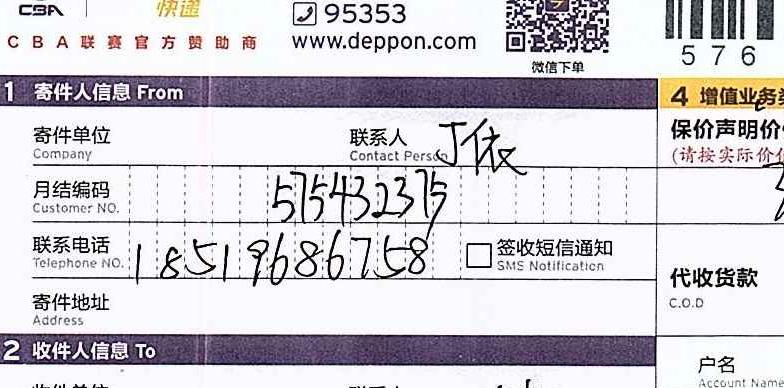 CBA 快递
CBA联赛官方赞助商
95353
www.deppon.com
微信下单
576
1 寄件人信息 From
寄件单位
Company
联系人 丁依
Contact Person
月结编码 575432375
Customer NO.
联系电话 18519686758
Telephone NO.
签收短信通知
SMS Notification
寄件地址
Address
2 收件人信息 To
4 增值业务
保价声明价
(请按实际价
代收货款
C.O.D
户名
Account Name